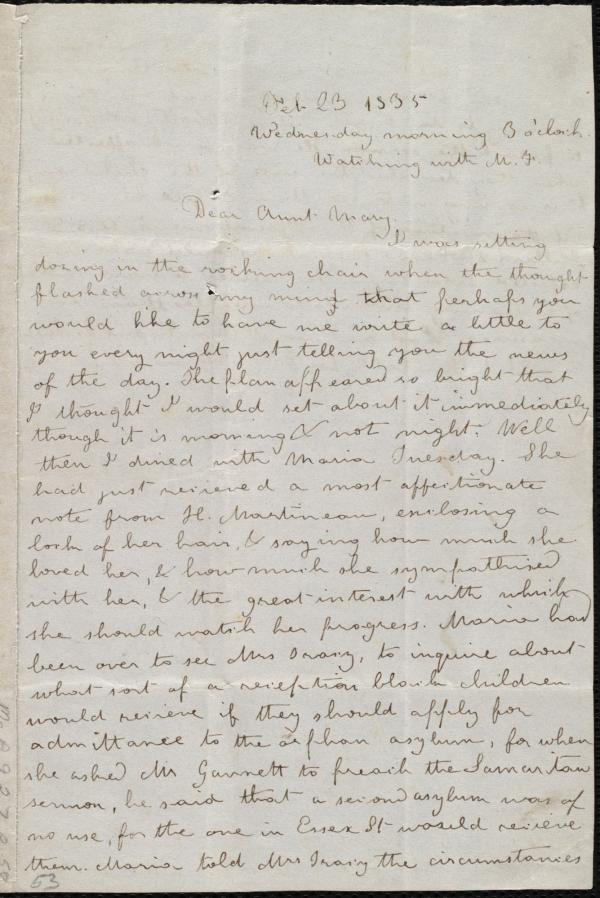 Oct 23 1835
Wednesday morning 3 o'clock.
Watching with M. F.
Dear Aunt Mary.
I was setting
dozing in the rocking chair when the thought
flashed across my mind that perhaps you
would like to have me write a little to
you every night just telling you the news
of the day. The plan appeared so bright that
I thought I would set about it immediately
though it is morning & not night. Well
then I dined with Maria Tuesday. She
had just recieved a most affectionate
note from H. Martineau, enclosing a
lock of her hair, & saying how much she
loved her, & how much she sympathised
with her, & the great interest with which
she should watch her progress. Maria had
been over to see Mrs Tracy, to inquire about
what sort of a reception black children
would recieve if they should apply for
admittance to the orphan asylum, for when
she asked Mr Gannett to preach the Samaritan
sermon, he said that a second asylum was of
no use, for the one in Essex St would recieve
them. Maria told Mrs Tracy the circumstances
53